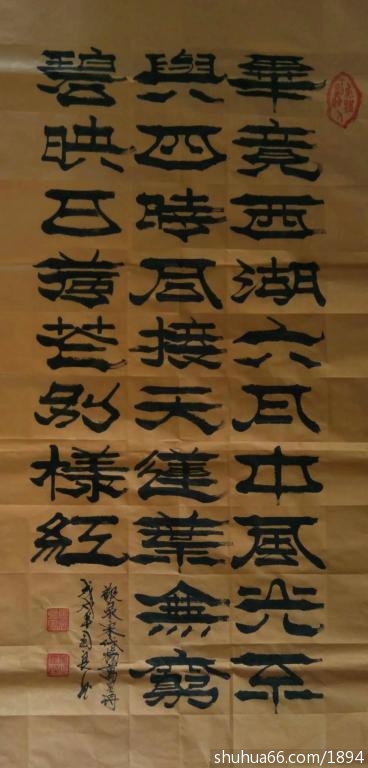 畢竟西湖六月中風光不
與四時同接天蓮葉無窮
碧映日荷花別樣紅
宋代楊萬里詩
戊戌年
shuhua66.com/1894